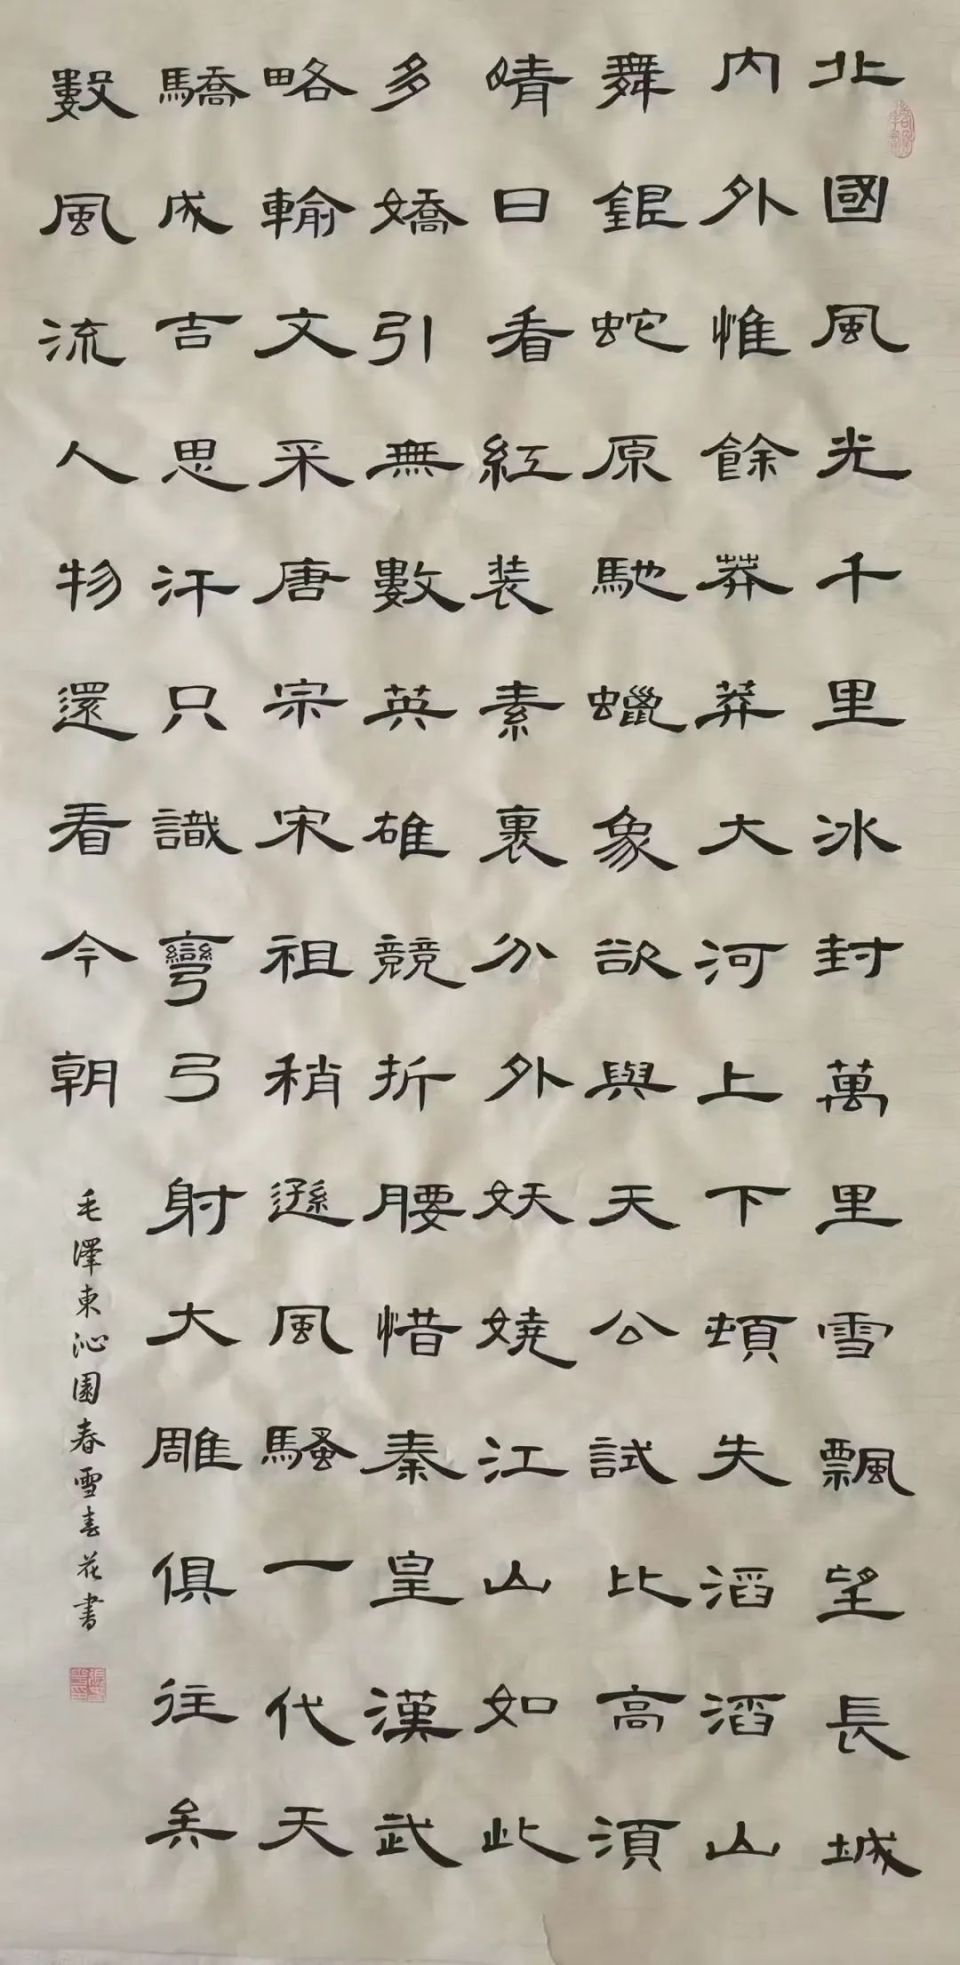 北國風光千里冰封萬里雪飄望長城
內外惟餘莽莽大河上下頓失滔滔山
舞銀蛇原馳蠟象欲與天公試比高須
晴日看紅装素裹分外妖嬈江山如此
多嬌引無數英雄競折腰惜秦皇漢武
略輸文采唐宗宋祖稍遜風騷一代天
驕成吉思汗只識彎弓射大雕俱往矣
數風流人物還看今朝
毛澤東沁園春雪春花書